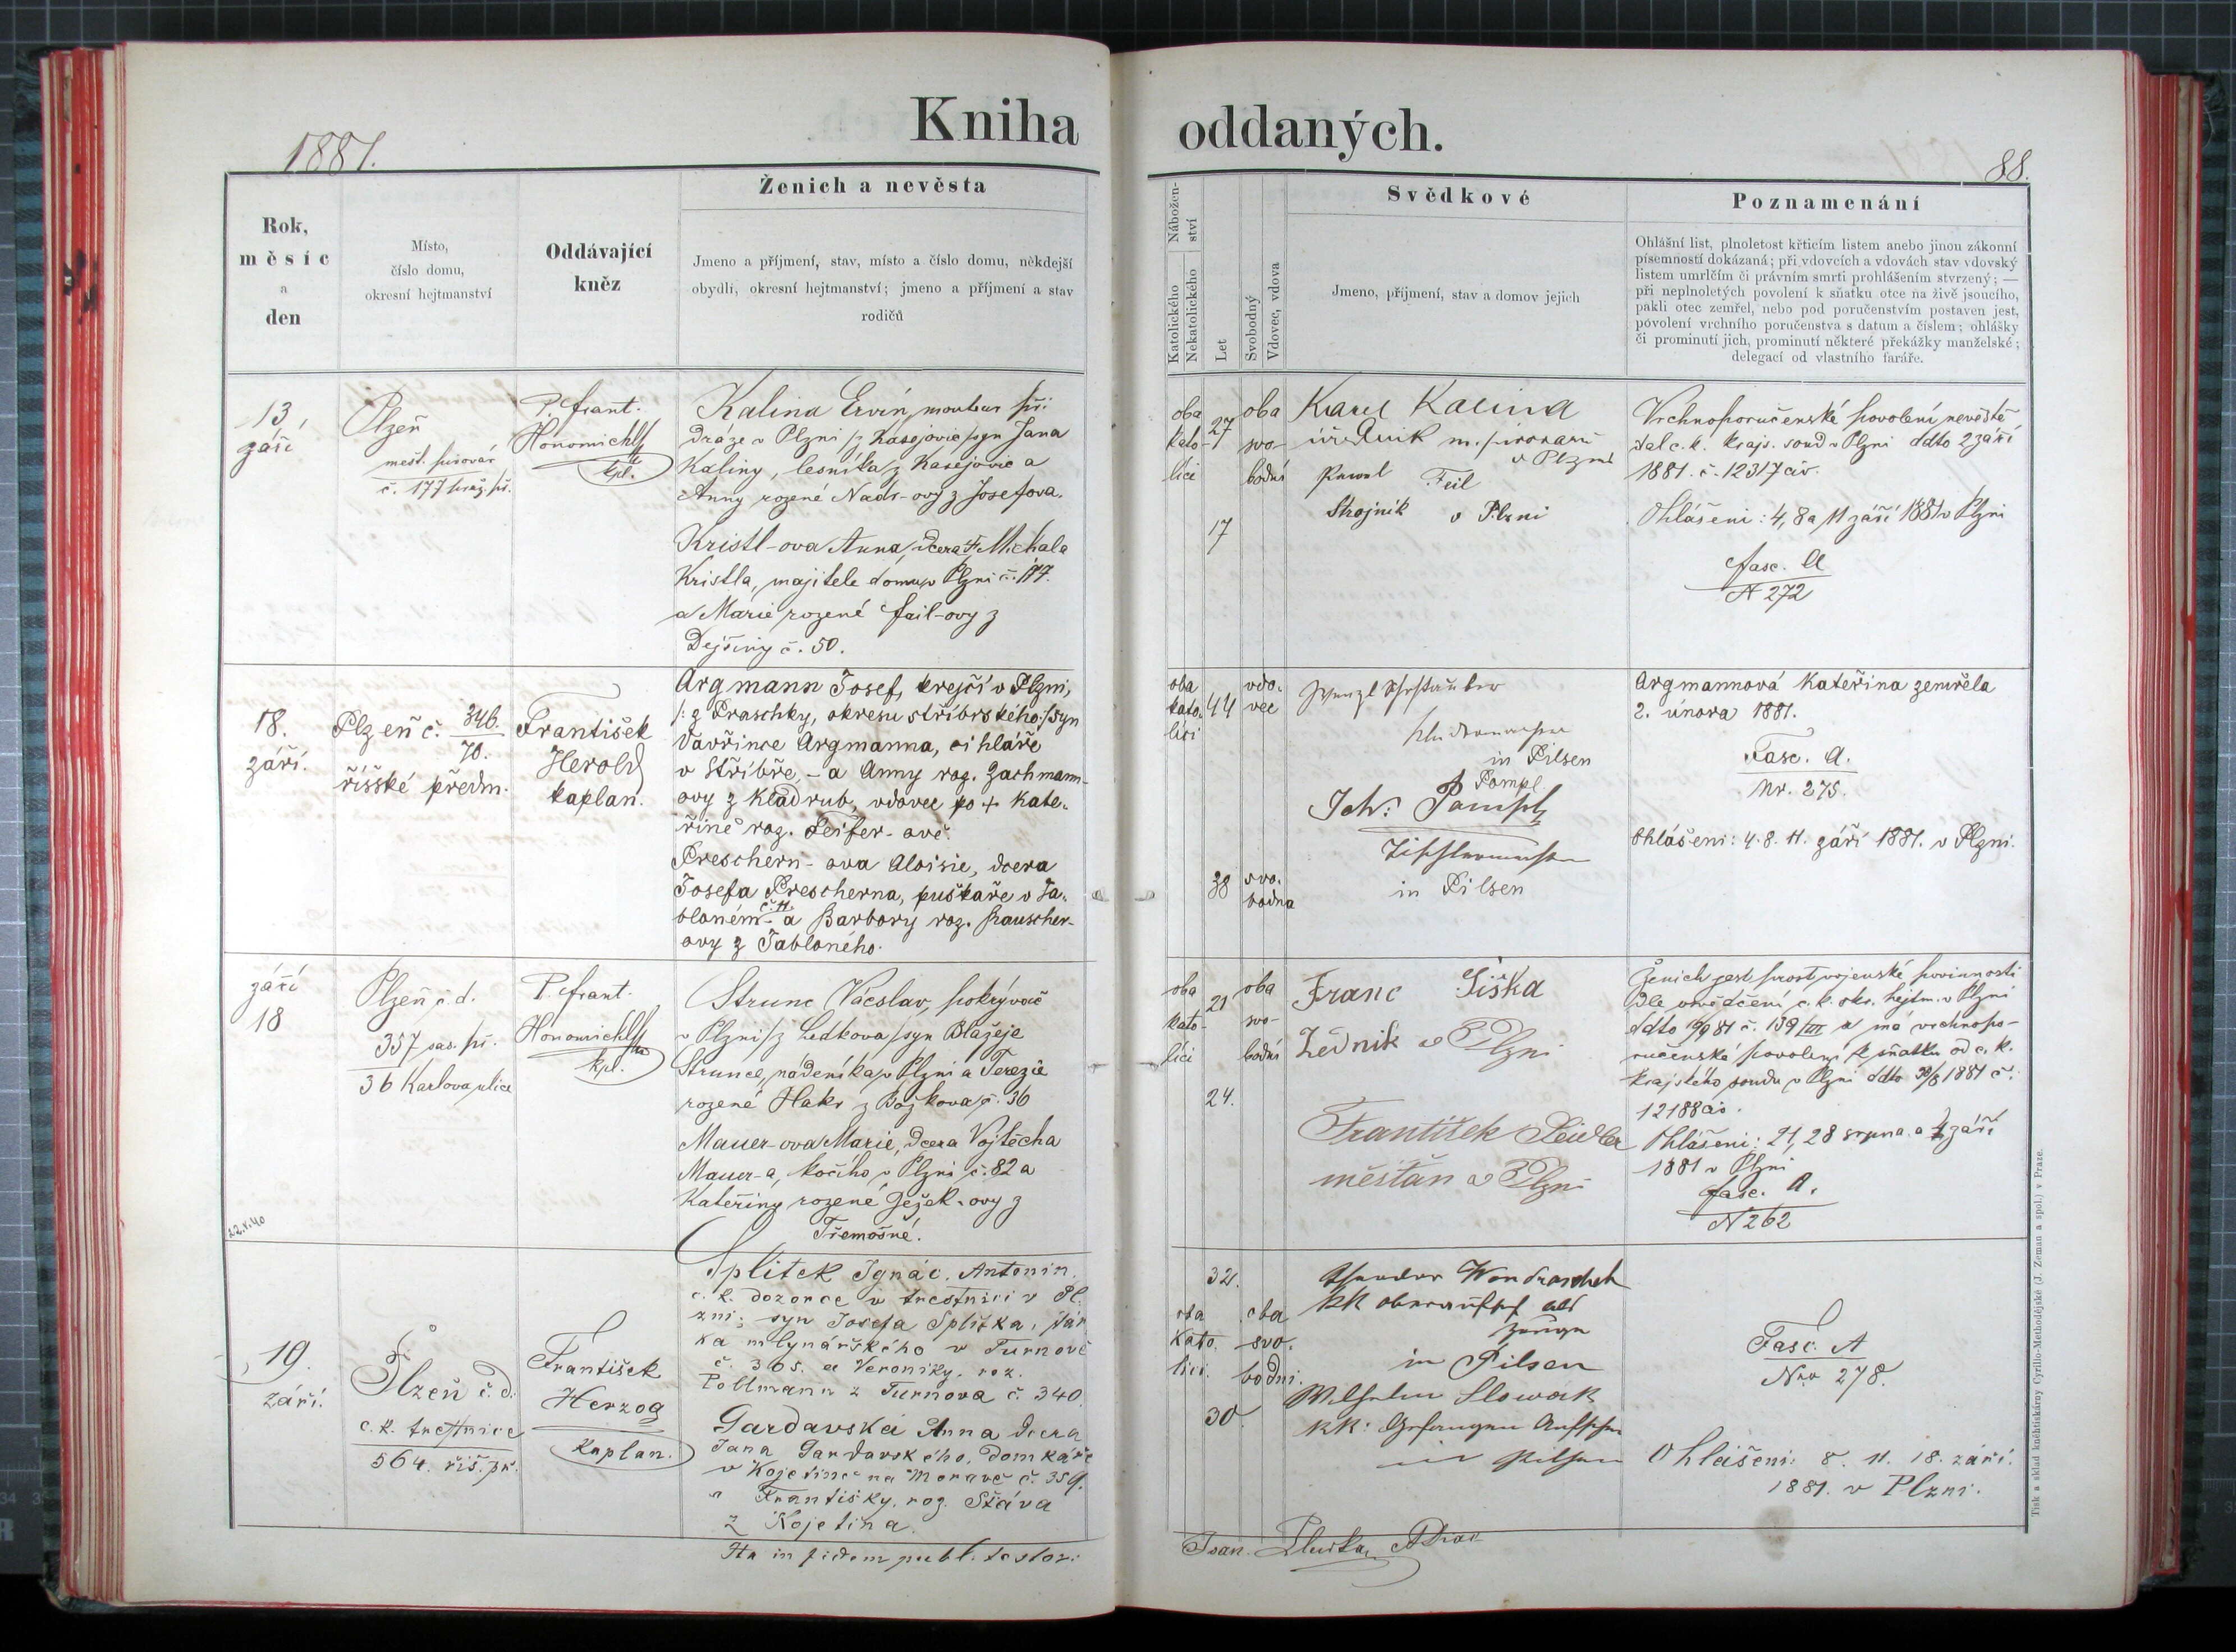 Kniha
oddaných.
1881.
88.
Rok,
měsíc
a
den
Místo,
číslo domu,
okresní hejtmanství
Oddávající
kněz
Ženich a nevěsta
Jmeno a příjmení, stav, místo a číslo domu, někdejší
obydlí, okresní hejtmanství; jmeno a příjmení a stav
rodičů
Nábožen-
ství
Katolického
Nekatolického
Let
Svobodný
Vdovec, vdova
Svědkové
Jmeno, příjmení, stav a domov jejich
Poznamenání
Ohlášní list, plnoletost křticím listem anebo jinou zákonní
písemností dokázaná; při vdovcích a vdovách stav vdovský
listem umrlčím či právním smrti prohlášením stvrzený; —
při neplnoletých povolení k sňatku otce na živě jsoucího,
pakli otec zemřel, nebo pod poručenstvím postaven jest,
povolení vrchního poručenstva s datum a číslem; ohlášky
či prominutí jich, prominutí některé překážky manželské;
delegací od vlastního faráře.
13
září
Plzeň
mešt. pivovár
č. 177 praž. př.
P. Frant.
Honomichl
kpl.
Kalina Ervín, monteur při
dráze v Plzni /z Kasejovic/ syn Jana
Kaliny, lesníka z Kasejovic a
Anny rozené Nadr-ovy z Josefova.
Kristl-ova Anna, dcera † Michala
Kristla, majitele domu v Plzni č. 177.
a Marie rozené Fail-ovy z
Dejšiny č. 50.
oba
kato-
líci
27
17
oba
svo-
bodní
Karel Kalina
úředník m. pivovaru
v Plzni
Pavel Feil
Strojník v Plzni
Vrchnoporučenské povolení nevěstě
dal c. k. krajs. soud v Plzni ddto 2 září
1881. č. 12317 civ.
Ohlášení: 4, 8 a 11 září 1881 v Plzni
fasc. A
N 272
18.
září.
Plzeň č. 346.
70.
říšské předm.
František
Herold
kaplan.
Argmann Josef, krejčí v Plzni,
/: z Praschky, okresu stříbrského :/ syn
Vavřince Argmanna, cihláře
v Stříbře, - a Anny roz. Zachmann-
ovy z Kladrub, vdovec po † Kate-
řině roz. Seifer-ově.
Preschern-ova Aloisie, dcera
Josefa Prescherna, puškaře v Ja-
bloném č. 11. a Barbory roz. Rauscher-
ovy z Jabloného.
oba
kato-
líci
44
38
vdo-
vec
svo-
bodna
in Pilsen
Pompl
Joh: Pompl
Tischlermeister
in Pilsen
Argmannová Kateřina zemřela
2. února 1881.
Fasc. A.
Nr. 275.
Ohlášení: 4. 8. 11. září 1881. v Plzni.
září
18
22.5.40
Plzeň č. d.
357 sas. př.
36 Karlova ulice
P. Frant.
Honomichl
kpl.
Strunc Václav, pokrývač
v Plzni /z Ledkova/ syn Blažeje
Strunce, nádeníka v Plzni a Terezie
rozené Hakr z Božkova č. 36
Mauer-ova Marie, dcera Vojtěcha
Mauer-a, kočího v Plzni č. 82 a
Kateřiny rozené Ježek-ovy z
Třemošné.
oba
kato-
líci
21
24.
oba
svo-
bodní
Franc Šiška
Zedník v Plzni
František Seidler
měšťan v Plzni
Ženich jest prost vojenské povinnosti
dle osvědčení c. k. okr. hejtm. v Plzni
ddto č. 139/III a má vrchnopo-
ručenské povolení k sňatku od c. k.
krajského soudu v Plzni ddto 30/8 1881 č.
12188 civ.
Ohlášení: 21, 28 srpna a 4 září
1881 v Plzni
fasc. A.
N 262
19.
září.
Plzeň č. d.
c. k. trestnice
564. říš. př.
František
Herzog
Kaplan.
Splítek Ignác, Antonín
c. k. dozorce v trestnici v Pl-
zni; syn Josefa Splítka, stár-
ka mlynářského v Turnově
č. 365. a Veroniky, roz.
Pollmann z Turnova č. 340.
Gardavská Anna dcera
Jana Gardavského, domkáře
v Kojetíně na Moravě č. 359.
a Františky, roz. Šťáva
z Kojetína.
32.
30.
oba
kato-
líci.
oba
svo-
bodni.
Theodor Wondraschek
KK Oberaufseher als
Zeuge
in Pilsen
Wilhelm Slowak
KK: Gefangen Aufseher
in Pilsen
Fasc. A
Nro 278.
Ohlášení: 8. 11. 18. září.
1881. v Plzni.
Ita in fidem publ. testor:
Tisk a sklad knihtiskárny Cyrillo-Methodějské (J. Zeman a spol.) v Praze.